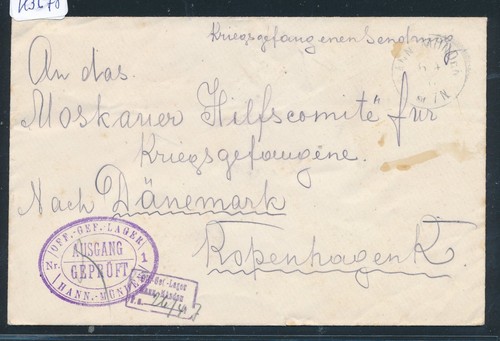 Kriegsgefangenen Sendung
An das
Moskauer Hilfscomité für
Kriegsgefangene.
Nach Dänemark
Kopenhagen K.
OFF.-GEF.-LAGER
AUSGANG
Nr. 1
GEPRÜFT
HANN.-MÜNDEN
Off-Gef-Lager
Hann.-Münden